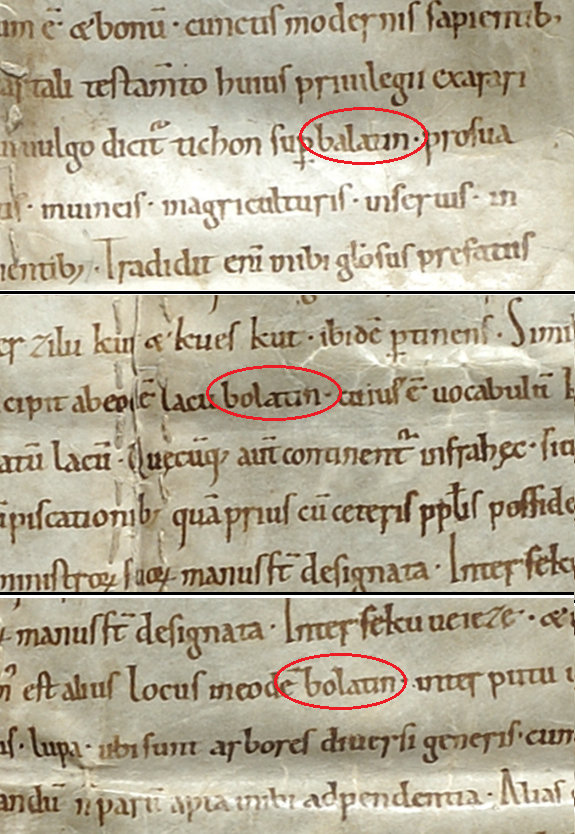 um ē & bonū · cunctis modernis sapientib;
tali testam̄to huius priuilegii exarari
uulgo dicit᷑ tichon sup̱ balatin · pro sua
muneis · in agriculturis · inseruis · in
ientib; · Tradidit eni᷑ m̄ ibi gl̄osus prefatus
zilu kut & kues kut · ibidē p̱tinens · Simil
cipit ab eodē lacu bolatin · cuius ē uocabulū
atū lacū · Quecūq; aut̄ continent᷑ infra hęc · sic
piscationib; quā prius cū ceteris pp̄lis posside
ministroꝝ suoꝝ manu sst̄ designata · Inter seku
manu sst̄ designata · Inter seku uereze · &
est alius locus in eodē bolatin · inter putu u
us · lupa · ubi sunt arbores diuersi generis · cum
andū n̄ parū apta inibi adpendentia · Alias